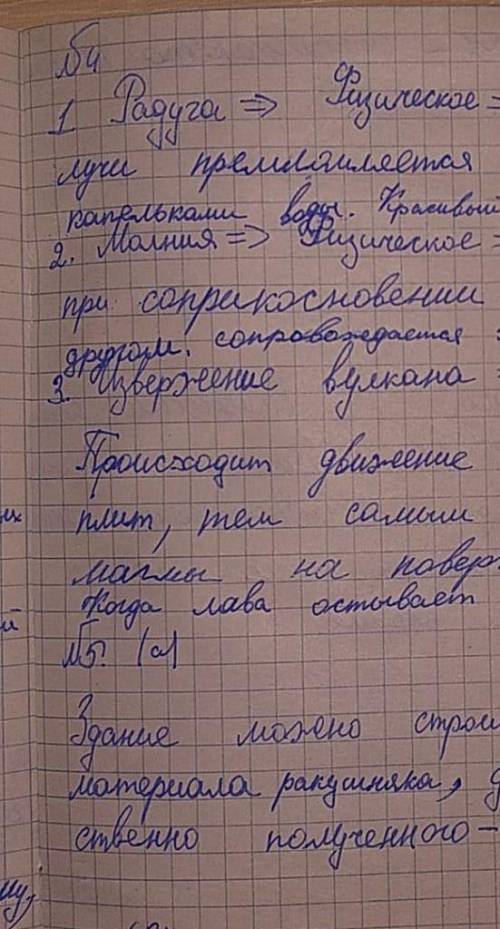 №4
1 Радуга => Физическое =
лучи премломляется
капельками воды. Красивый
2. Молния => Физическое =
при соприкосновении
другом. сопровождается
3. Извержение вулкана =
Происходит движение
плит, тем самым
магмы на поверх
Когда лава остывает
№5. (а)
Здание можно строи
материала ракушняка, д
ственно полученного -